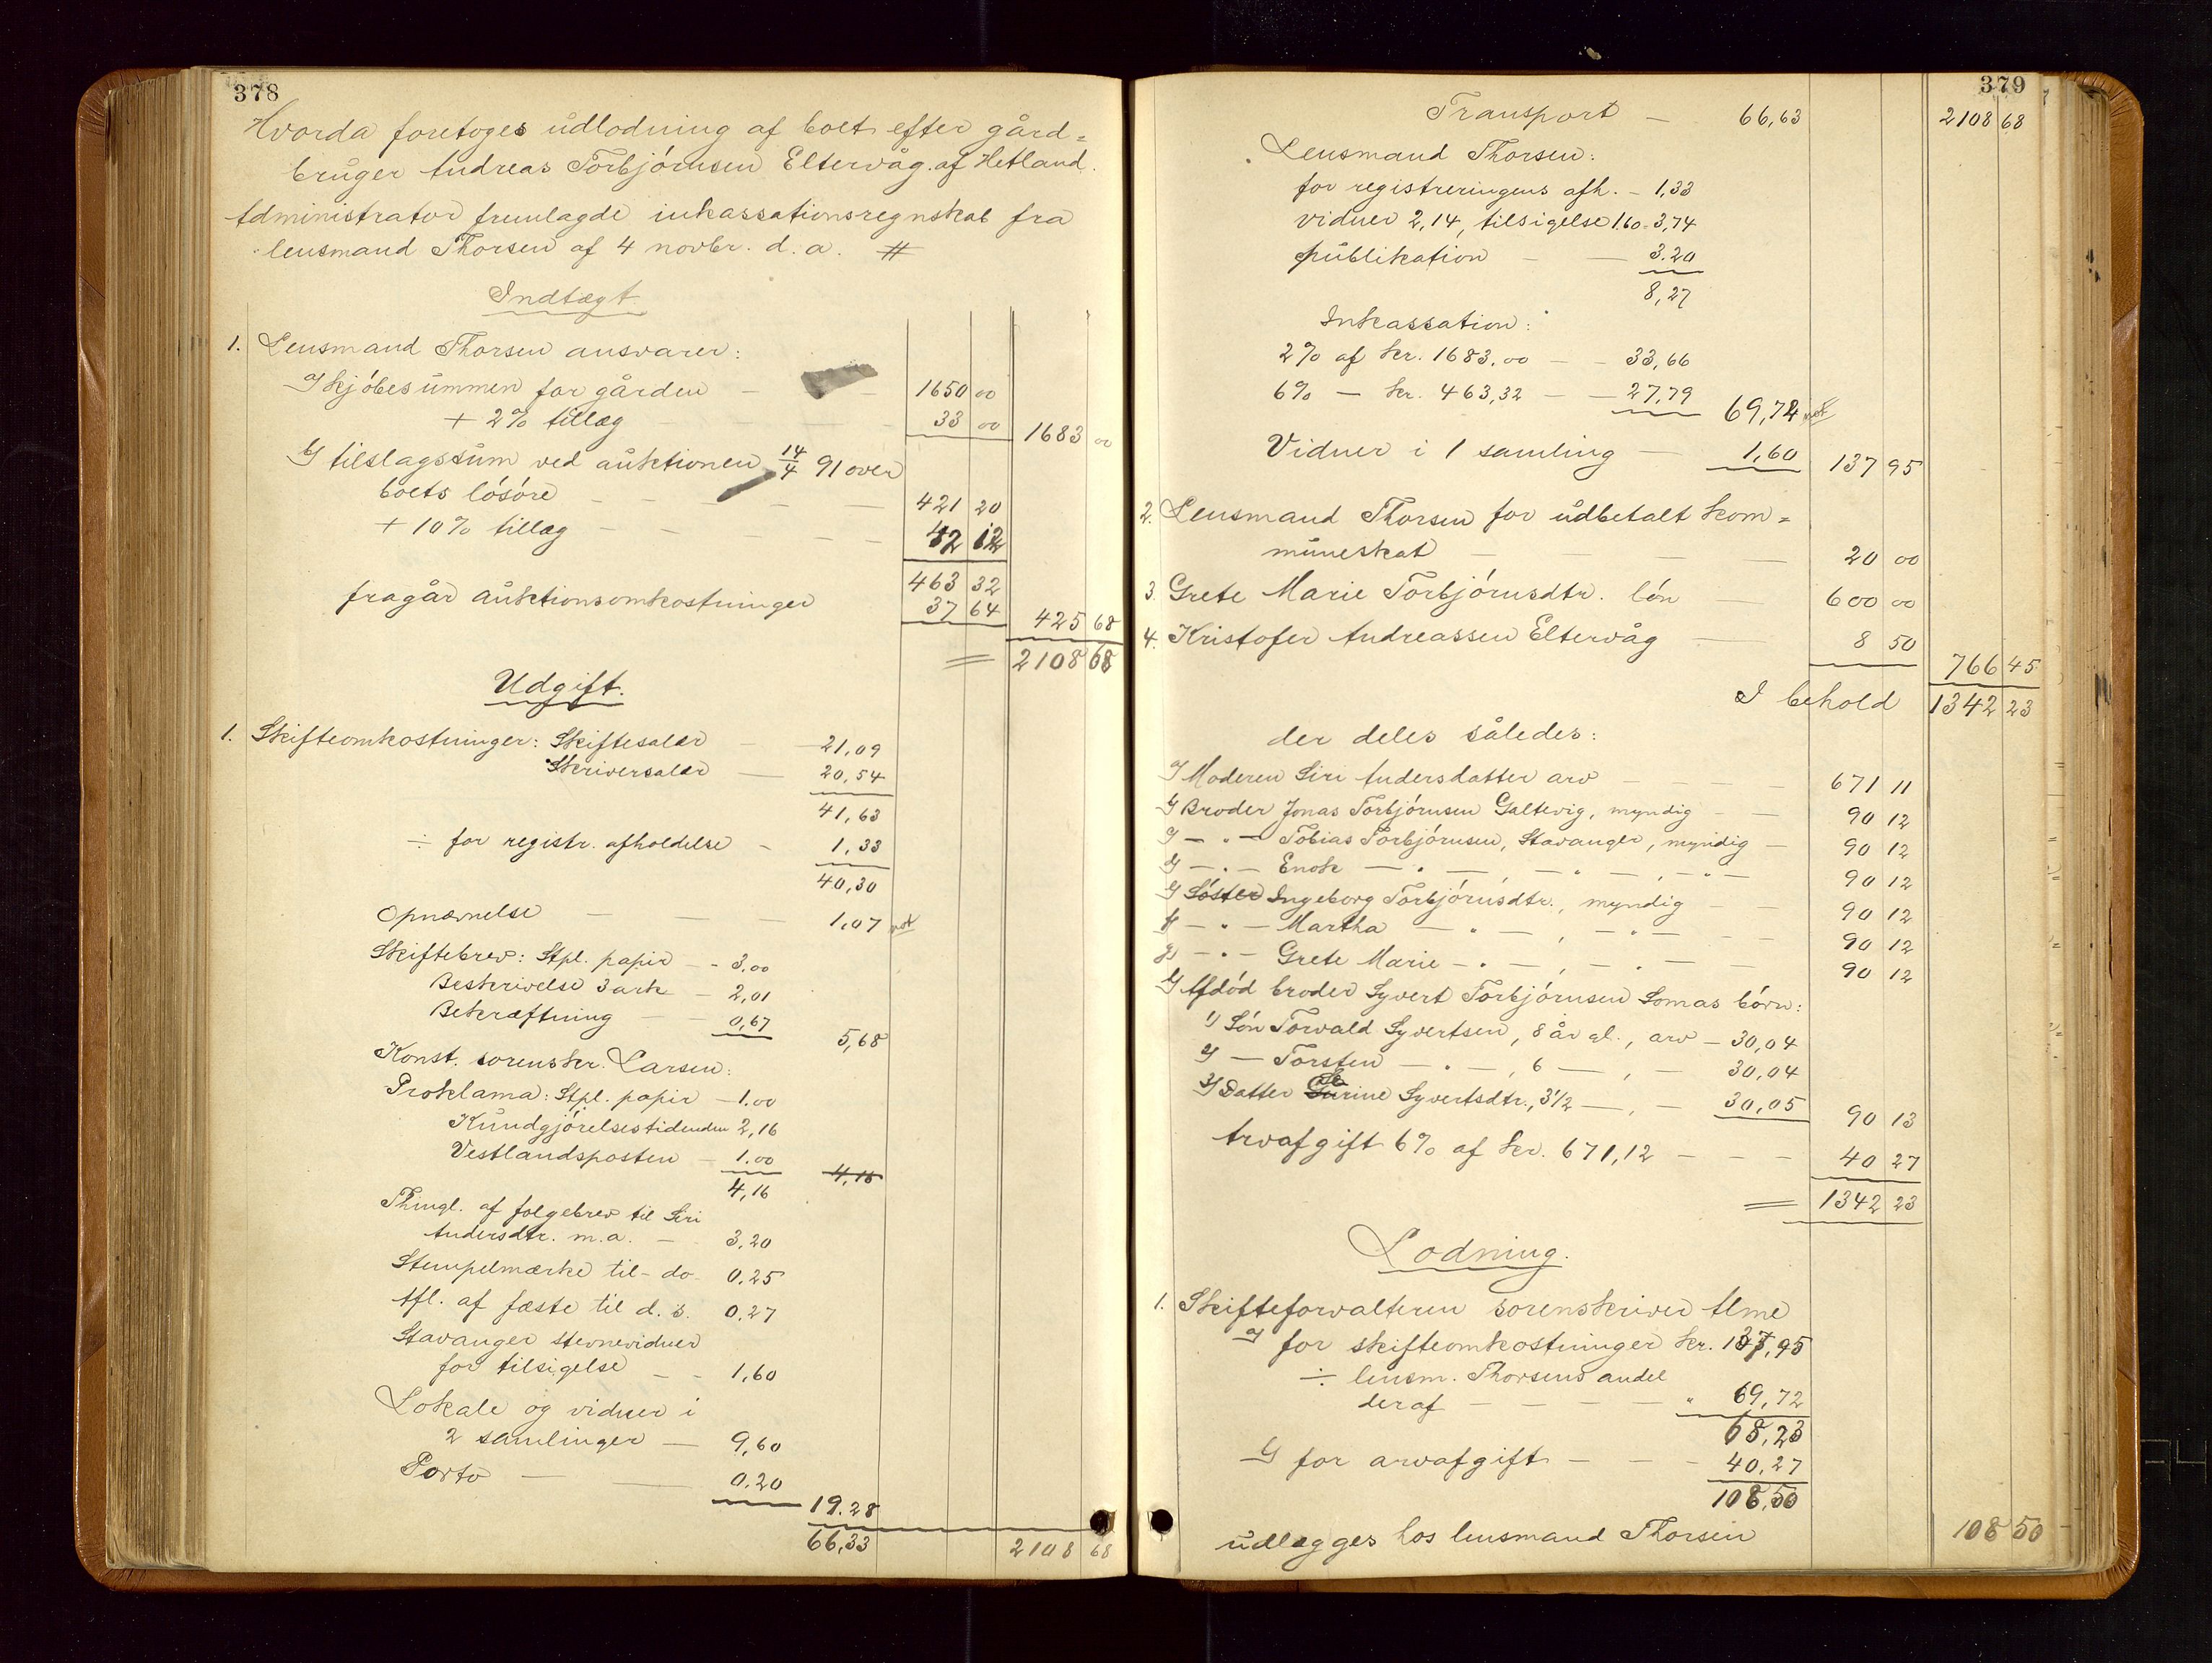 378
Hvorda foretoges udlodning af boet efter gård=
bruger Andreas Torbjörnsen Eltervåg af Hetland.
Administrator fremlagde inkassationsregnskab fra
lensmand Thorsen af 4 novbr. d. a. #
Indtægt.
1. Lensmand Thorsen ansvarer:
1) kjöbesummen for gården — — 1650 00
+ 2% tillæg — — — — 33 00 1683 00
2) tilslagssum ved auktionen 14/4 91 over
boets lösöre — — — — — 421 20
+ 10% tillæg — — — — — 42 12
463 32
fragår auktionsomkostninger 37 64 425 68
= 2108 68
Udgift.
1. Skifteomkostninger: Skiftesalær — 21,09
Skriversalær — 20,54
41,63
÷ for registr. afholdelse — 1,33
40,30
Opnævnelse — — — 1,07
Skiftebrev: Stpl. papir — - 3,00
Beskrivelse 3 ark — 2,01
Bekræftning — — 0,67 5,68
Konst. sorenskr. Larsen:
Proklama: Stpl. papir — 1.00
Kundgjörelsestidenden 2,16
Vestlandsposten — 1.00 4,16
4,16
Thingl. af fölgebrev til Siri
Andersdtr. m.a. — 3,20
Stempelmærke til - do 0.25
Afl. af fæste til d. s. 0,27
Stavanger stevnevidner
for tilsigelse — - 1,60
Lokale og vidner i
2 samlinger — 9,60
Porto — — 0.20
19.28
66,33 2108 68
379
Transport — 66,63 2108 68
Lensmand Thorsen:
for registreringens afh. - 1,33
vidner 2,14, tilsigelse 1.60 - 3,74
publikation — — 3.20
8,27
Inkassation:
2% af kr. 1683.00 — - 33,66
6% — kr. 463,32 — - 27,79 69,72
Vidner i 1 samling — 1,60 137 95
2. Lensmand Thorsen for udbetalt kom=
muneskat — — — 20 00
3. Grete Marie Torbjörnsdtr. lön — 600 00
4. Kristofer Andreassen Eltervåg — 8 50
766 45
I behold 1342 23
der deles således:
1) Moderen Siri Andersdatter arv — — — 671 11
2) Broder Jonas Torbjörnsen Galtevig, myndig — — 90 12
3) — " — Tobias Torbjörnsen, Stavanger, myndig — 90 12
4) — " — Enok — " — , — " — , — " — 90 12
5) Söster Ingeborg Torbjörnsdtr., myndig — — 90 12
6) — " — Martha — " — , — " — — — 90 12
7) — " — Grete Marie — " — , — " — — — 90 12
8) Afdöd broder Syvert Torbjörnsen Somas börn:
1) Sön Torvald Syvertsen, 8 år gl., arv — 30,04
2) — Torsten — " — , 6 — , — 30,04
3) Datter Serine Syvertsdtr., 3½ — , — 30,05 90 13
Arvafgift 6% af kr. 671,12 — — — 40 27
= 1342 23
Lodning.
1. Skifteforvalteren sorenskriver Alme
1) for skifteomkostninger kr. 137,95
÷ lensm. Thorsens andel
deraf — — — — " 69,72
68,23
2) for arvafgift — — — 40,27
108,50
udlægges hos lensmand Thorsen 108 50